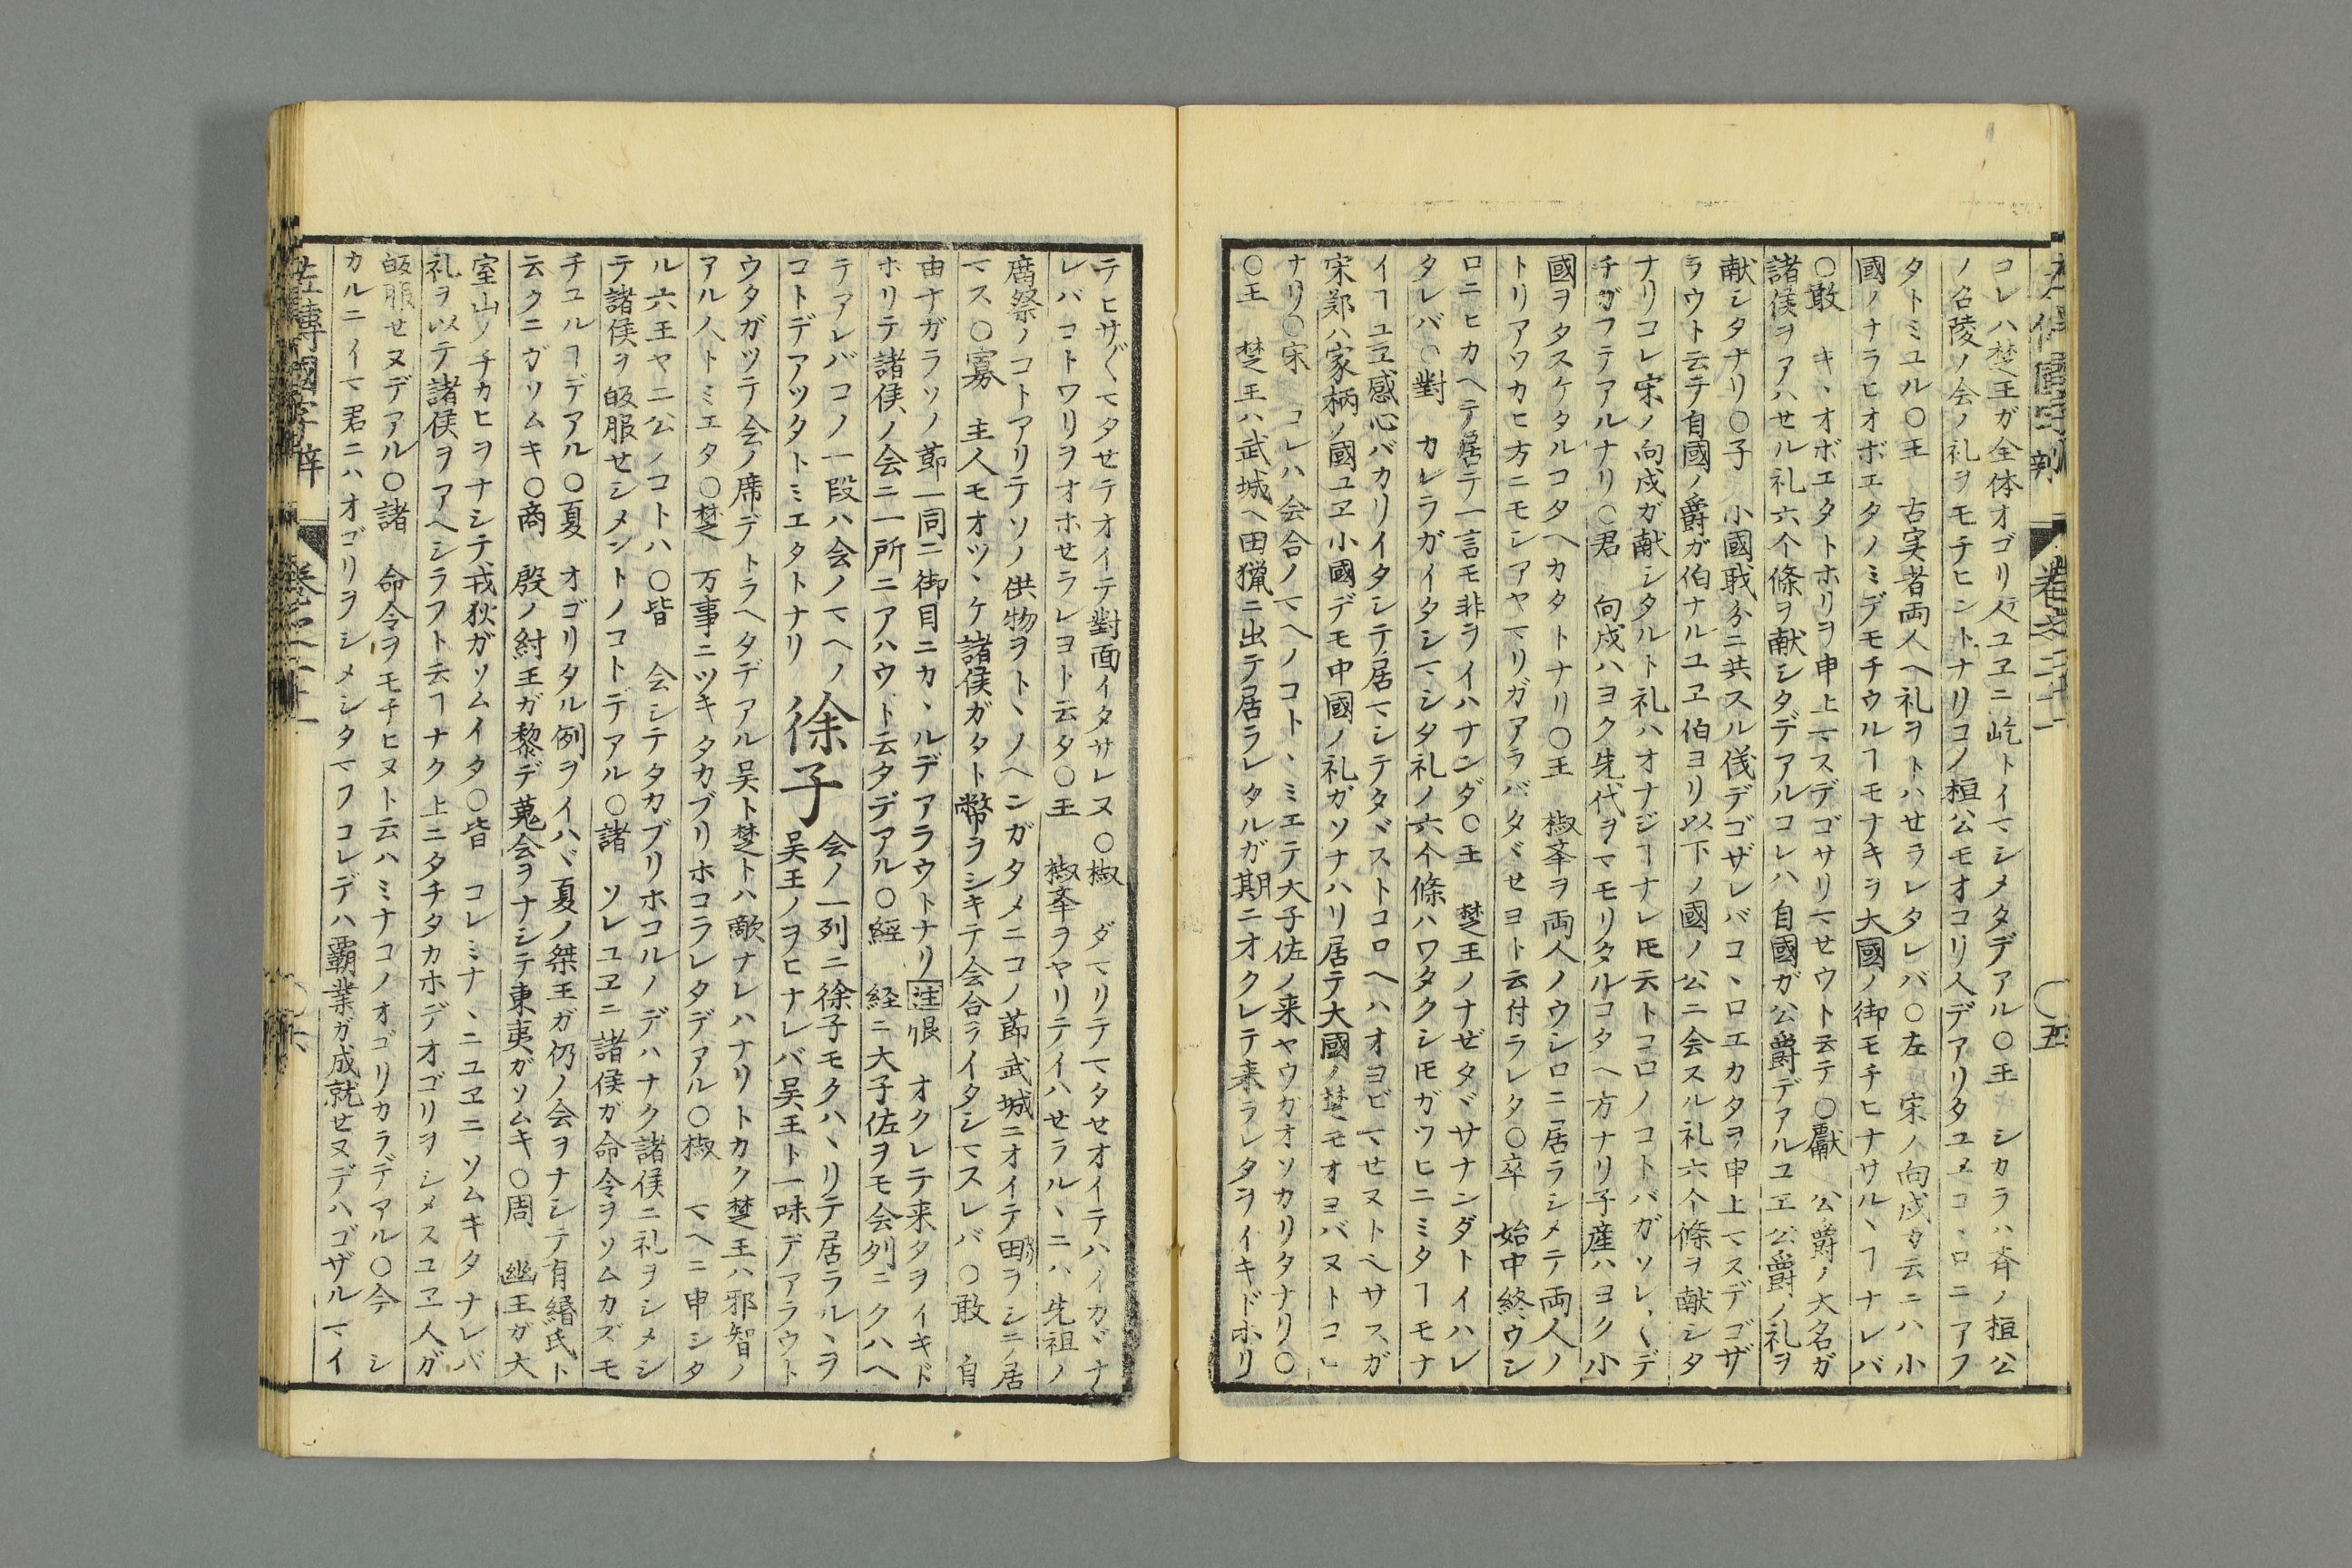 左傳國字辯 卷之二十一 〇五
コレハ楚王ガ全体オゴリ人ユヱニ屹トイマシメタデアル〇王 シカラハ斉ノ桓公
ノ召陵ノ会ノ礼ヲモチヒントナリコノ桓公モオコリ人デアリタユヱコヽロニアフ
タトミユル〇王 古実者両人ヘ礼ヲトハセラレタレバ〇左 宋ノ向戌ガ云ニハ小
國ノナラヒオボエタノミデモチウルヿモナキヲ大國ノ御モチヒナサルヽヿナレバ
〇敢 キヽオボエタトホリヲ申上マスデゴサリマせウト云テ〇獻 公爵ノ大名ガ
諸侯ヲアハせル礼六个條ヲ献シタデアルコレハ自國ガ公爵デアルユヱ公爵ノ礼ヲ
献シタナリ〇子 小國戝分ニ共スル伐デゴザレバコヽロエカタヲ申上マスデゴザ
ラウト云テ自國ノ爵ガ伯ナルユヱ伯ヨリ以下ノ國ノ公ニ会スル礼六个條ヲ献シタ
ナリコレ宋ノ向戌ガ献シタルト礼ハオナジヿナレ𪜈云トコロノコトバガソレ〱デ
チガフテアルナリ〇君 向戌ハヨク先代ヲマモリタルコタヘ方ナリ子産ハヨク小
國ヲタスケタルコタヘカタトナリ〇王 椒举ヲ両人ノウシロニ居ラシメテ両人ノ
トリアワカヒ方ニモシアヤマリガアラバタヾせヨト云付ラレタ〇卒 始中終ウシ
ロニヒカヘテ居テ一言モ非ヲイハナンダ〇王 楚王ノナゼタヾサナンダトイハレ
タレバ〇對 カレラガイタシマシタ礼ノ六个條ハワタクシ𪜈ガツヒニミタヿモナ
イヿユヱ感心バカリイタシテ居マシテタヾストコロヘハオヨビマせヌトヘサスガ
宋郑ハ家柄ノ國ユヱ小國デモ中國ノ礼ガソナハリ居テ大國ノ楚モオヨバヌトコロ
ナリ〇宋 コレハ会合ノマヘノコトヽミエテ大子佐ノ来ヤウガオソカリタナリ〇
〇王 楚王ハ武城ヘ田獵ニ出テ居ラレタルガ期ニオクレテ来ラレタヲイキドホリ
テヒサ〲マタせテオイテ對面イタサレヌ〇椒 ダマリテマタせオイテハイカヾナ
レバコトワリヲオホせラレヨト云タ〇王 椒举ヲヤリテイハせラルヽニハ先祖ノ
廟祭ノコトアリテソノ供物ヲトヽノヘンガタメニコノ節武城ニオイテ田ヲシニノ居
マス〇寡 主人モオツヽケ諸侯ガタト幣ヲシキテ会合ヲイタシマスレバ〇敢 自
由ナガラソノ節一同ニ御目ニカヽルデアラウトナリ注恨 オクレテ来タヲイキド
ホリテ諸侯ノ会ニ一所ニアハウト云タデアル〇經 経ニ大子佐ヲモ会列ニクハヘ
テアレバコノ一段ハ会ノマヘノ 徐子 会ノ一列ニ徐子モクハヽリテ居ラルヽヲ
コトデアツタトミエタトナリ 吴王ノヲヒナレバ吴王ト一味デアラウト
ウタガツテ会ノ席デトラヘタデアル吴ト楚トハ敵ナレハナリトカク楚王ハ邪智ノ
アル人トミエタ〇楚 万事ニツキタカブリホコラレタデアル〇椒 マヘニ申シタ
ル六王ヤ二公ノコトハ〇皆 会シテタカブリホコルノデハナク諸侯ニ礼ヲシメシ
テ諸侯ヲ皈服せシメントノコトデアル〇諸 ソレユヱニ諸侯ガ命令ヲソムカズモ
チユルヿデアル〇夏 オゴリタル例ヲイハヾ夏ノ桀王ガ仍ノ会ヲナシテ有緡氏ト
云クニガソムキ〇商 殷ノ紂王ガ黎デ蒐会ヲナシテ東夷ガソムキ〇周 幽王ガ大
室山ノチカヒヲナシテ戎狄ガソムイタ〇皆 コレミナヽニユヱニソムキタナレバ
礼ヲ以テ諸侯ヲアヘシラフト云ヿナク上ニタチタカホデオゴリヲシメスユヱ人ガ
皈服せヌデアル〇諸 命令ヲモチヒヌト云ハミナコノオゴリカラデアル〇今 シ
カルニイマ君ニハオゴリヲシメシタマフコレデハ覇業ガ成就せヌデハゴザルマイ
左傳國字辯 卷之二十一 〇六